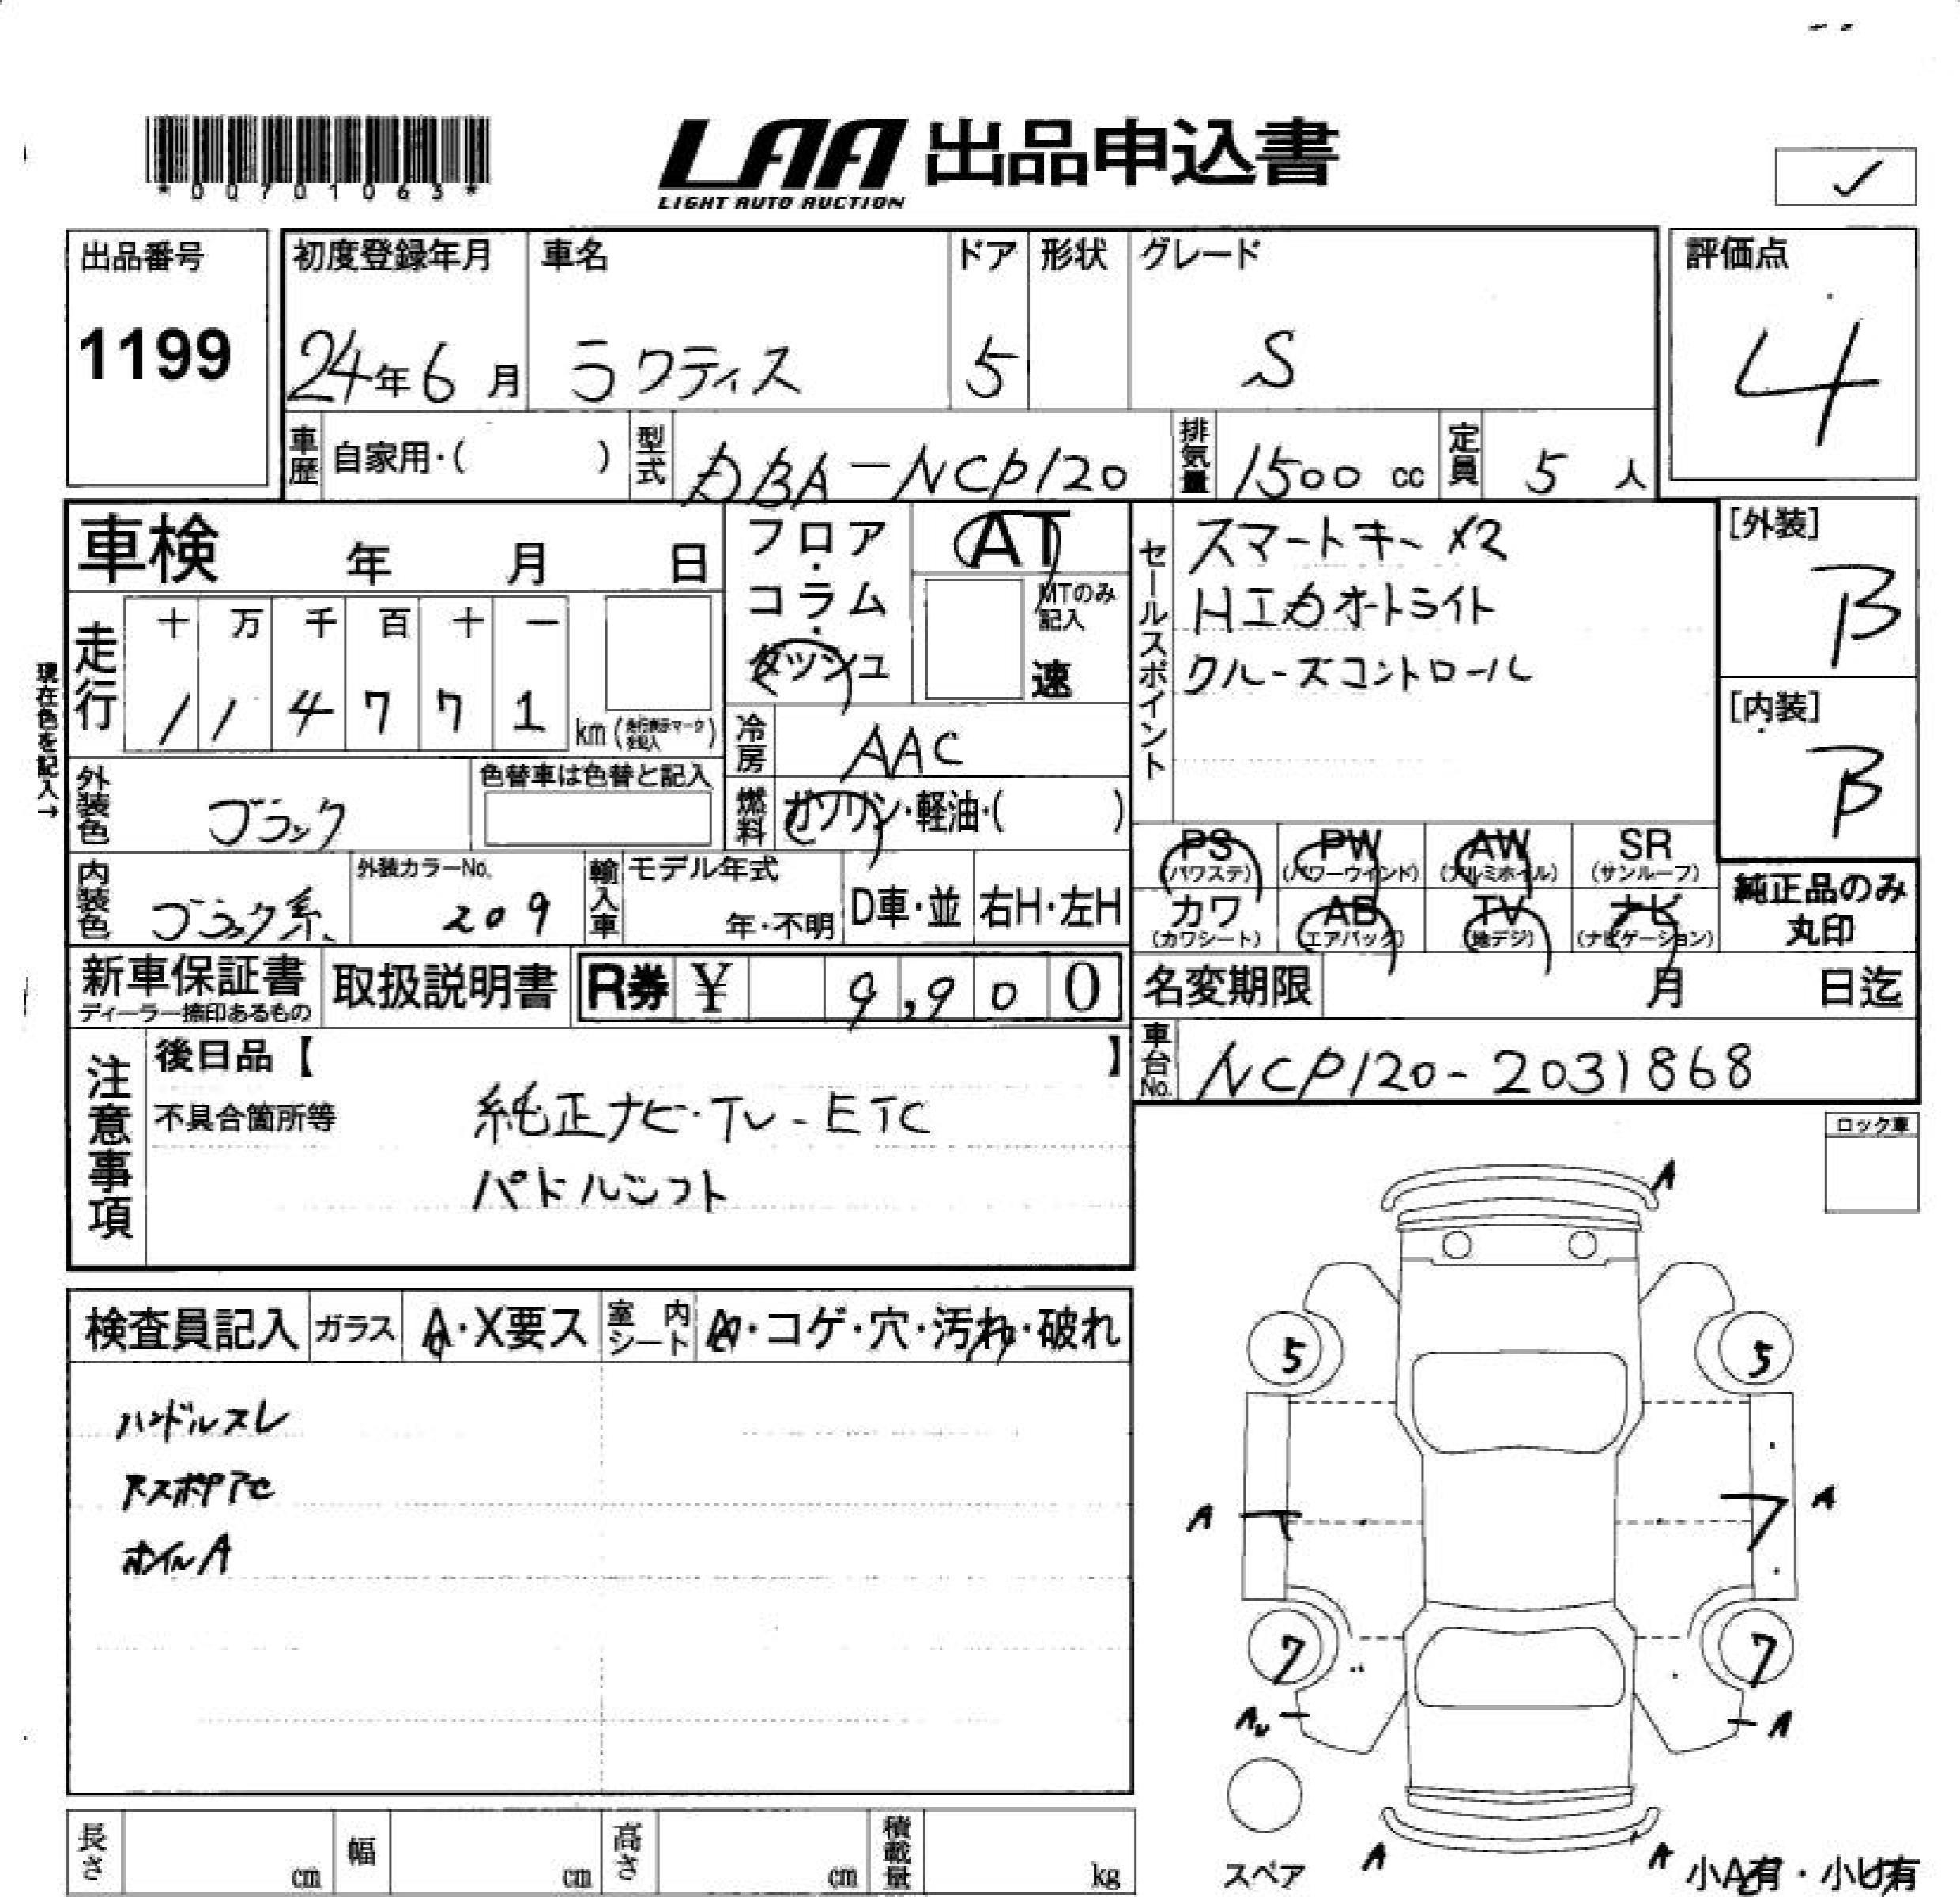 *00701063*
LAA 出品申込書
LIGHT AUTO AUCTION
✓
出品番号
1199
初度登録年月
24年6月
車名
ラクティス
ドア
5
形状
グレード
S
評価点
4
車歴 自家用・( )
型式 DBA-NCP120
排気量 1500 cc
定員 5 人
車検 年 月 日
フロア・コラム・ダッシュ
AT
MTのみ記入
速
セールスポイント
スマートキー ×2
HIDオートライト
クルーズコントロール
[外装]
B
[内装]
B
現在色を記入→
走行
十 万 千 百 十 一
1 1 4 7 7 1 km
冷房 AAC
外装色 ブラック
色替車は色替と記入
燃料 ガソリン・軽油・( )
内装色 ブラック系
外装カラーNo.
209
輸入車
モデル年式
年・不明
D車・並
右H・左H
PS (パワステ)
PW (パワーウインド)
AW (アルミホイル)
SR (サンルーフ)
カワ (カワシート)
AB (エアバック)
TV (地デジ)
ナビ (ナビゲーション)
純正品のみ
丸印
新車保証書
ディーラー捺印あるもの
取扱説明書
R券 ¥ 9,900
名変期限 月 日迄
車台No. NCP120-2031868
注意事項
後日品【 】
不具合箇所等
純正ナビ・TV-ETC
パドルシフト
ロック車
検査員記入
ガラス A・X要ス
室内シート
・コゲ・穴・汚れ・破れ
ハンドルスレ
ホイルA
A
5 5
A A
7 7
A
スペア
A A
小A有・小U有
長さ cm
幅 cm
高さ cm
積載量 kg